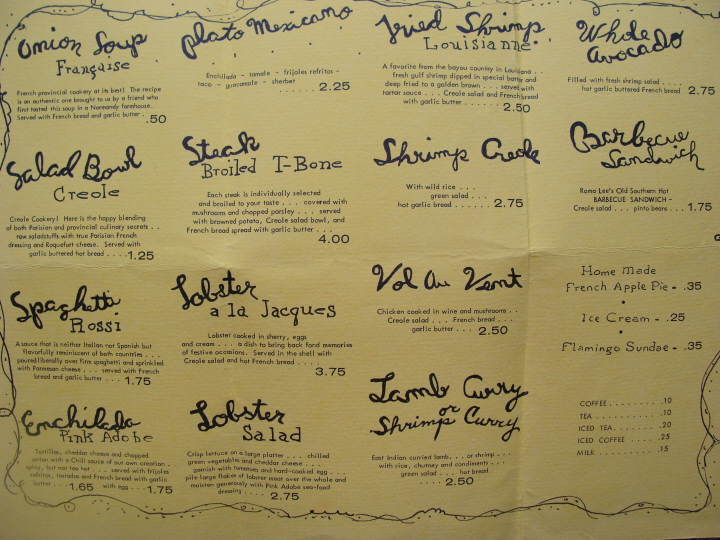 Onion Soup
Française
French provincial cookery at its best! The recipe
is an authentic one brought to us by a friend who
first tasted this soup in a Normandy farmhouse.
Served with French bread and garlic butter . .50
Salad Bowl
Creole
Creole Cookery! Here is the happy blending
of both Parisian and provincial culinary secrets . . .
raw saladstuffs with true Parisian French
dressing and Roquefort cheese. Served with
garlic buttered hot bread . . . . 1.25
Spaghetti
Rossi
A sauce that is neither Italian nor Spanish but
flavorfully reminiscent of both countries . . .
poured liberally over fine spaghetti and sprinkled
with Parmesan cheese . . . served with French
bread and garlic butter . . . . 1.75
Enchilada
Pink Adobe
Tortillas, cheddar cheese and chopped
onion with a Chili sauce of our own creation . .
spicy, but not too hot . . . served with frijoles
refritos, tostados and French bread with garlic
butter . . . . 1.65 with egg . . . . 1.75
Plato Mexicano
Enchilada – tamale – frijoles refritos –
taco – guacamole – sherbet
. . . . . . 2.25
Steak
Broiled T-Bone
Each steak is individually selected
and broiled to your taste . . . covered with
mushrooms and chopped parsley . . . served
with browned potato, Creole salad bowl, and
French bread spread with garlic butter . . .
4.00
Lobster
a la Jacques
Lobster cooked in sherry, eggs
and cream . . . a dish to bring back fond memories
of festive occasions. Served in the shell with
Creole salad and hot French bread . . . .
3.75
Lobster
Salad
Crisp lettuce on a large platter . . . chilled
green vegetables and cheddar cheese . . .
garnish with tomatoes and hard-cooked egg . . .
pile large flakes of lobster meat over the whole and
moisten generously with Pink Adobe sea-food
dressing . . . . 2.75
Fried Shrimp
Louisianne
A favorite from the bayou country in Louisiana . .
fresh gulf shrimp dipped in special batter and
deep fried to a golden brown . . . served with
tartar sauce . . . Creole salad and French bread
with garlic butter . . . . .
2.50
Shrimp Creole
With wild rice . . .
green salad . . .
hot garlic bread . . . . . . . 2.75
Vol Au Vent
Chicken cooked in wine and mushrooms . .
Creole salad . . . French bread . . .
garlic butter . . . . 2.50
Lamb Curry
or
Shrimp Curry
East Indian curried lamb. . . or shrimp . . .
with rice, chutney and condiments . . .
green salad . . . hot bread
. . . . . 2.50
Whole
Avocado
Filled with fresh shrimp salad . . . .
hot garlic buttered French bread 2.75
Barbecue
Sandwich
Roma Lee's Old Southern Hot
BARBECUE SANDWICH –
Creole salad . . . pinto beans . . . 1.75
Home Made
French Apple Pie - .35
Ice Cream - .25
Flamingo Sundae - .35
COFFEE . . . . . . . . . .10
TEA . . . . . . . . . . . . .10
ICED TEA . . . . . . . . .20
ICED COFFEE . . . . . .25
MILK . . . . . . . . . . . .15